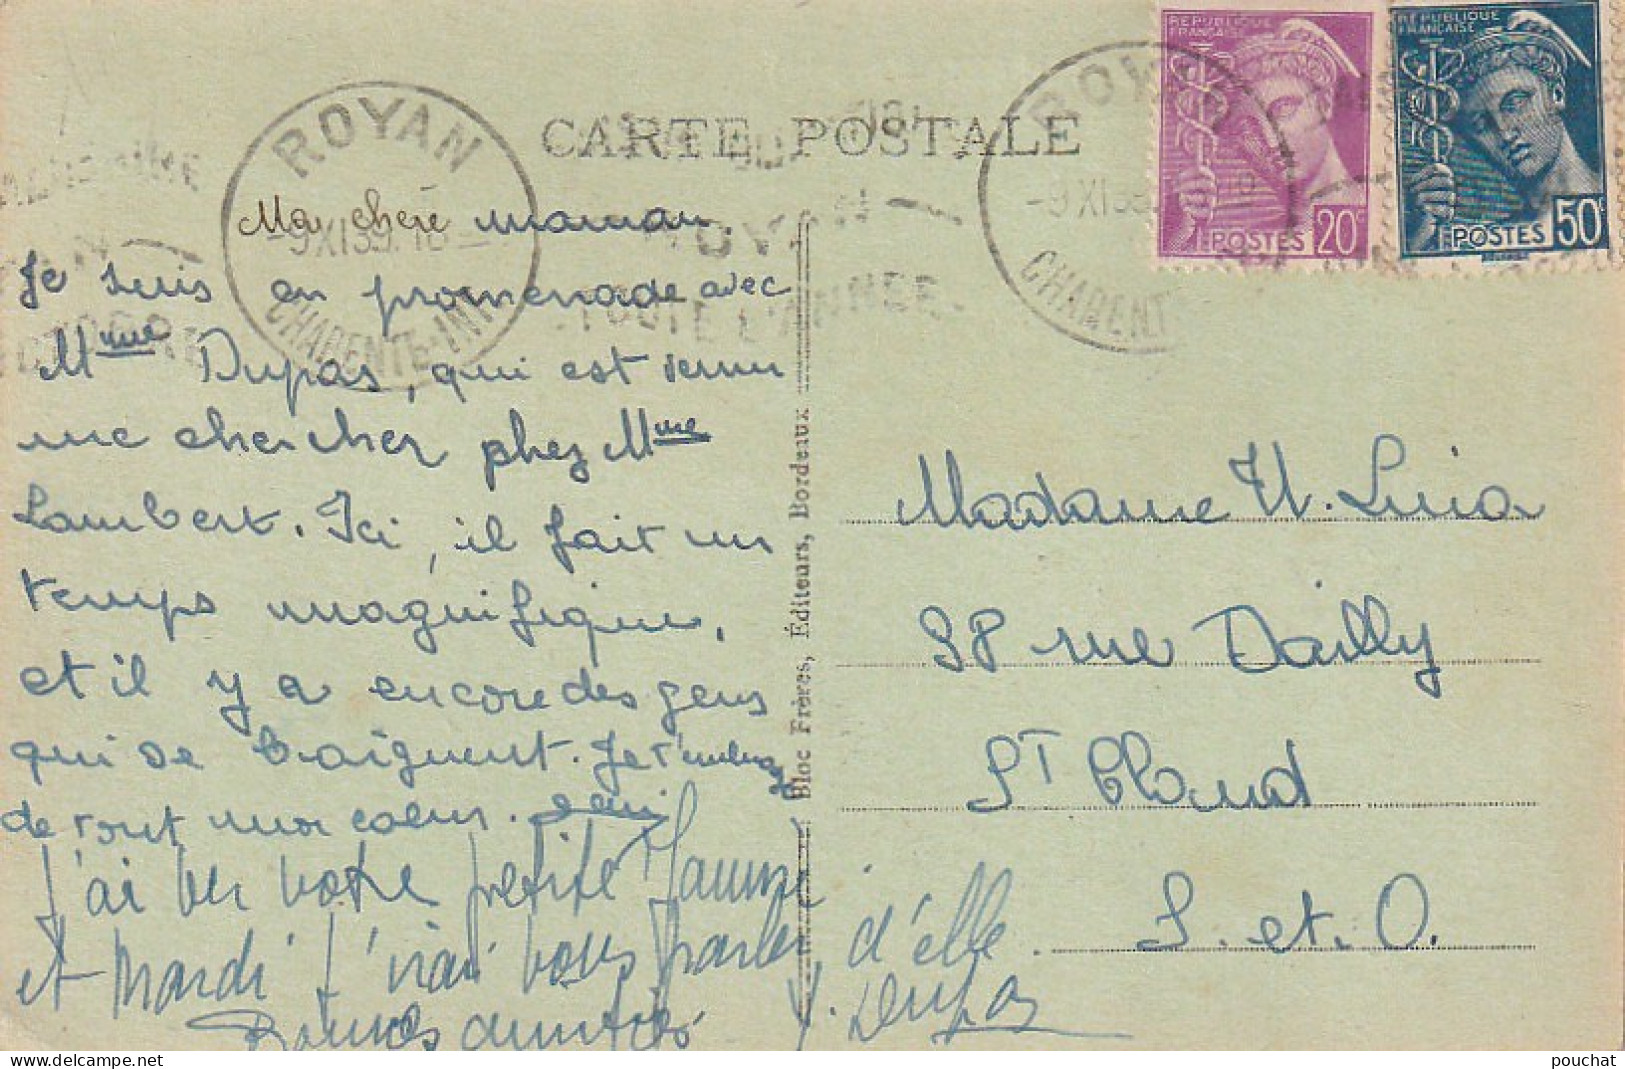 CARTE POSTALE
ROYAN
-9 XI 39. 18
CHARENTE-INF
ROYAN
TOUTE L'ANNEE
ROYAN
-9 XI 39
CHARENTE
REPUBLIQUE
FRANCAISE
POSTES 20c
REPUBLIQUE
FRANCAISE
POSTES 50c
Ma chère maman.
Je suis en promenade avec
Mme Dupas, qui est venu
me chercher chez Mme
Lambert. Ici, il fait un
temps magnifique,
et il y a encore des gens
qui se baignent. Je t'embrasse
de tout mon coeur.
J'ai vu votre petite
et Mardi j'irai vous parler d'elle
Bonnes amitiés Y. Dupas
Bloc Frères, Éditeurs, Bordeaux
Madame
rue Dailly
St Cloud
S. et. O.
pouchat